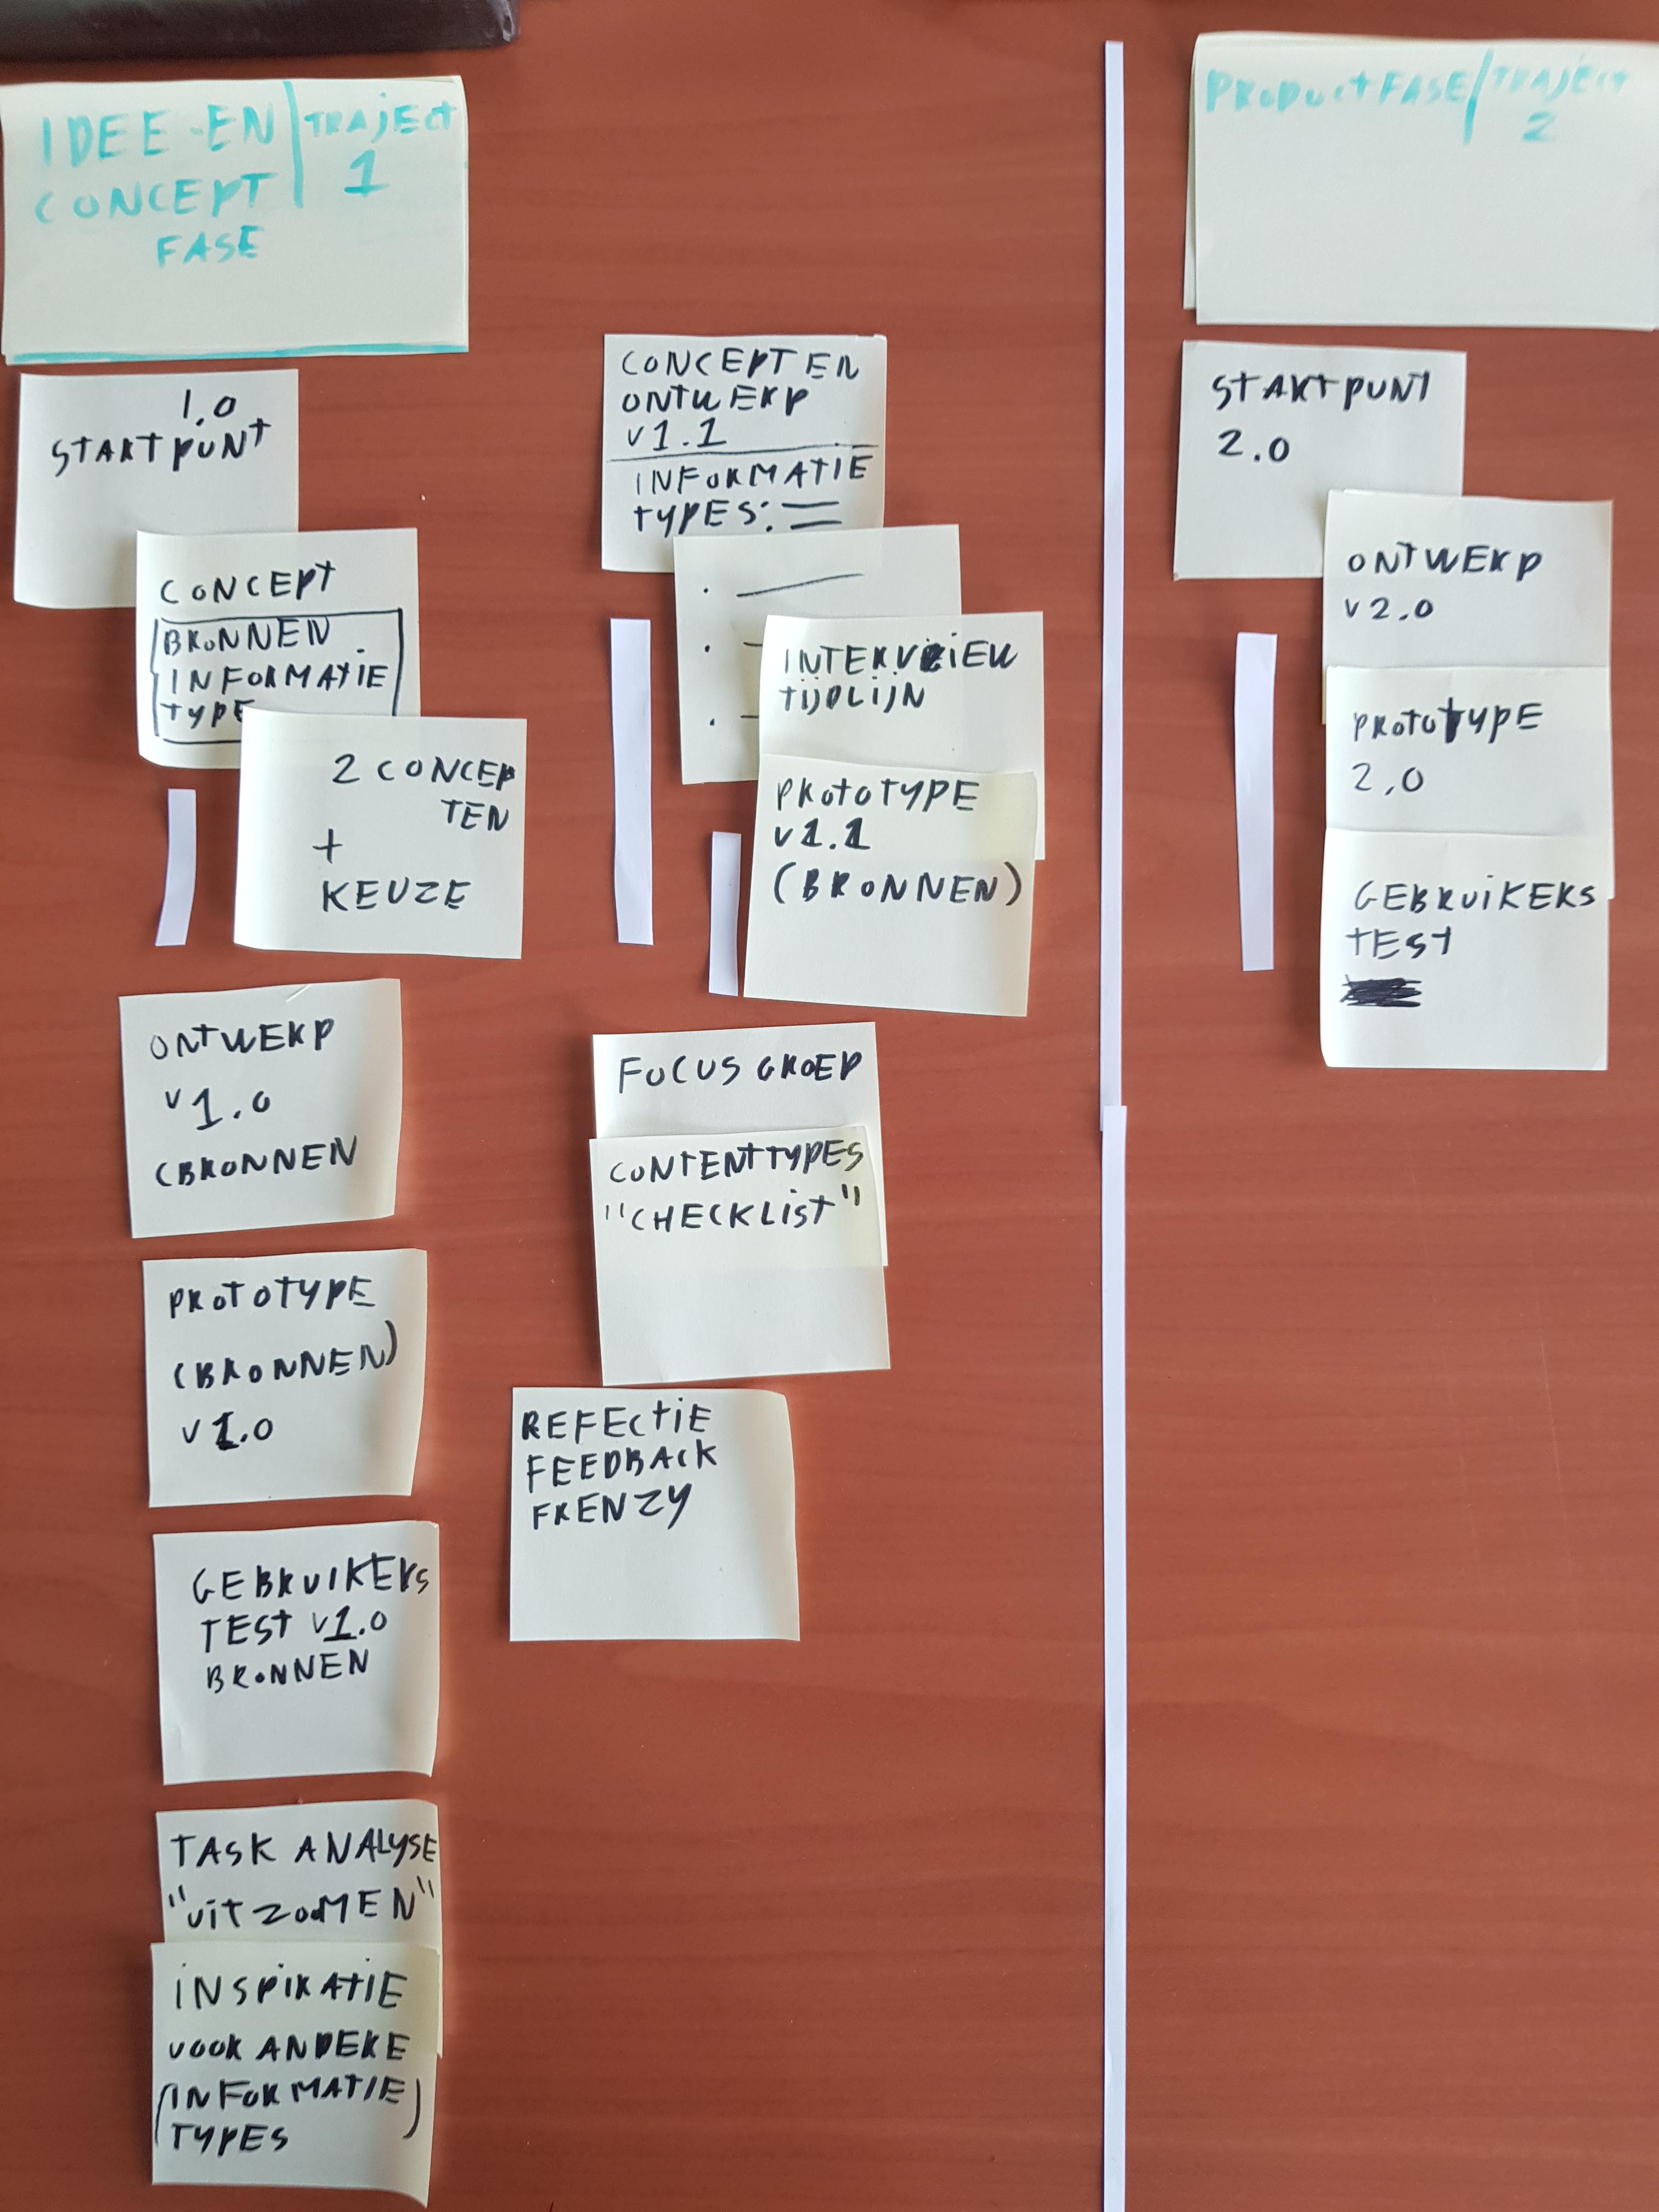 IDEE-EN | TRAJECT
CONCEPT | 1
FASE
1.0
STARTPUNT
CONCEPT
BRONNEN
INFORMATIE
TYPE
2 CONCEP
TEN
+
KEUZE
ONTWERP
v1.0
(BRONNEN
PROTOTYPE
(BRONNEN)
v1.0
GEBRUIKERS
TEST v1.0
BRONNEN
TASK ANALYSE
"UITZOOMEN"
INSPIRATIE
VOOR ANDERE
(INFORMATIE)
TYPES
CONCEPT EN
ONTWERP
v1.1
INFORMATIE
TYPES:
INTERVIEW
TIJDLIJN
PROTOTYPE
v1.1
(BRONNEN)
FOCUS GROEP
CONTENTTYPES
"CHECKLIST"
REFECTIE
FEEDBACK
FRENZY
PRODUCTFASE / TRAJECT
2
STARTPUNT
2.0
ONTWERP
v2.0
PROTOTYPE
2.0
GEBRUIKERS
TEST